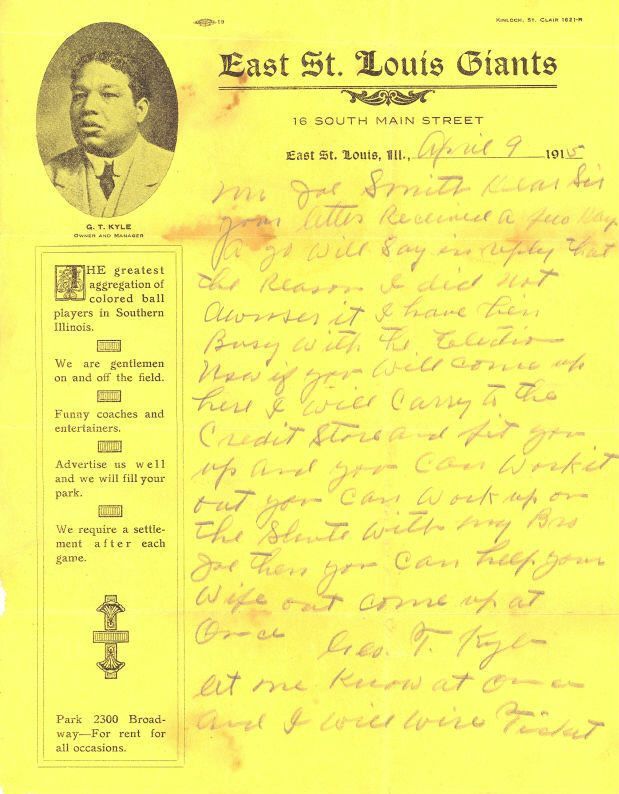 19
KINLOCH, ST. CLAIR 1621-R
East St. Louis Giants
16 SOUTH MAIN STREET
East St. Louis, Ill., April 9 1915
G. T. KYLE
OWNER AND MANAGER
THE greatest
aggregation of
colored ball
players in Southern
Illinois.
We are gentlemen
on and off the field.
Funny coaches and
entertainers.
Advertise us well
and we will fill your
park.
We require a settle-
ment after each
game.
Park 2300 Broad-
way—For rent for
all occasions.
Mr Joe Smith Dear Sir
your letter Received a few Day
A go Will Say in reply that
the Reason I did Not
it I have ben
Busy With the Electio
Now if you Will come up
here I Will Carry to the
Credit Store and fit you
up and you Can Work it
out you Can Work up on
the With my Bro
Joe then you Can help your
Wife out come up at
Once Geo. T. Kyle
let me Know at Once
And I Will Wire Ticket